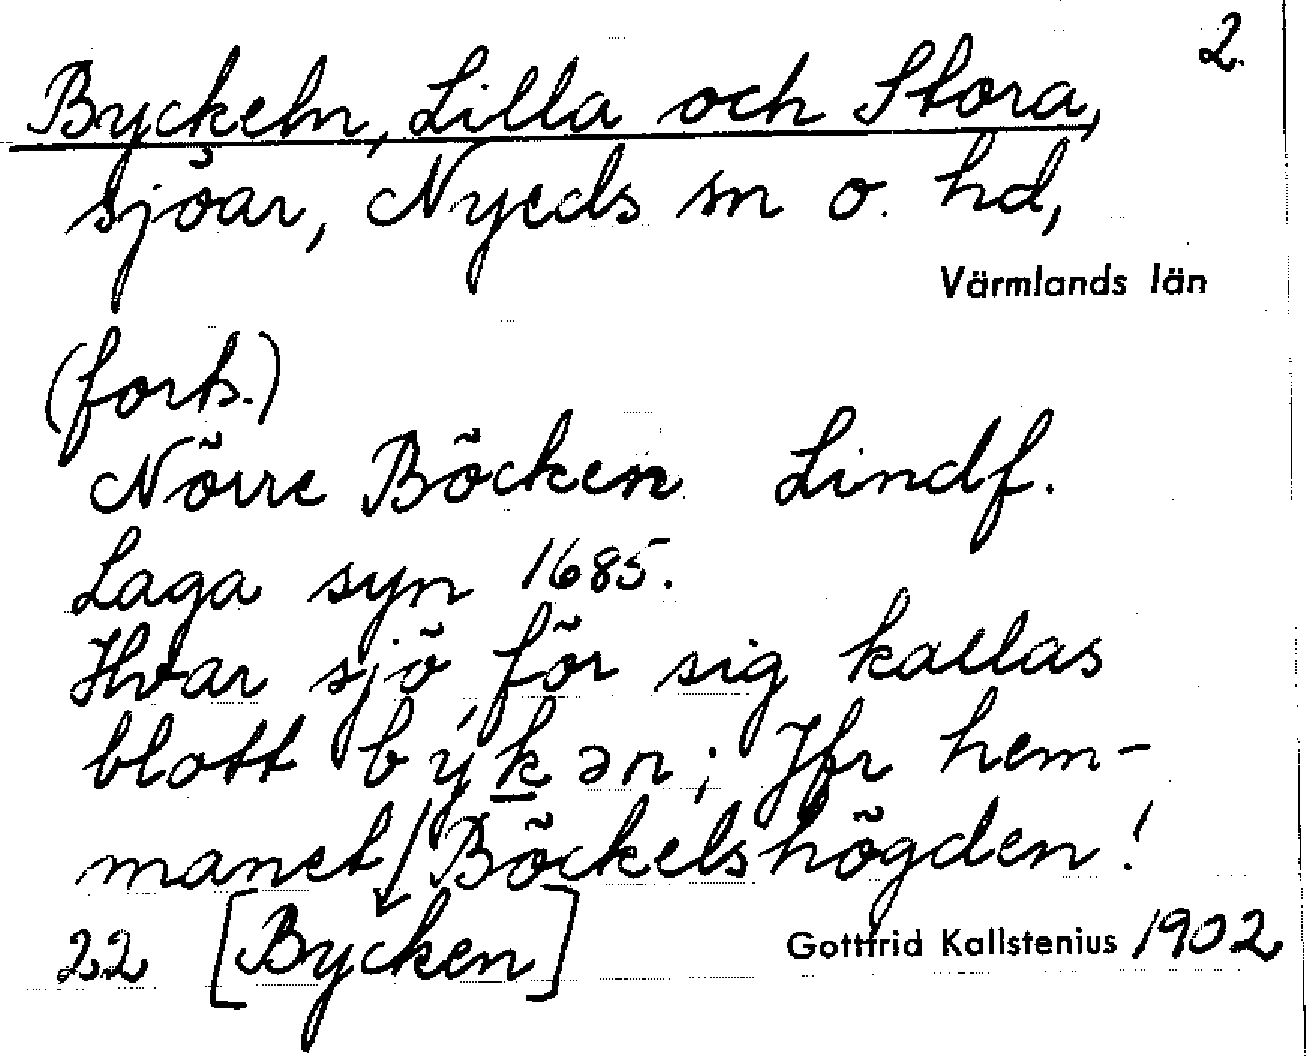 2.
Byckeln, Lilla och Stora,
sjöar, Nyeds sn o. hd,
Värmlands län
(forts.)
Nörre Böcken Lindf.
Laga syn 1685.
Hvar sjö för sig kallas
blott býkən; Jfr hem-
manet Böckelshögden!
22 [Bycken] Gottfrid Kallstenius 1902